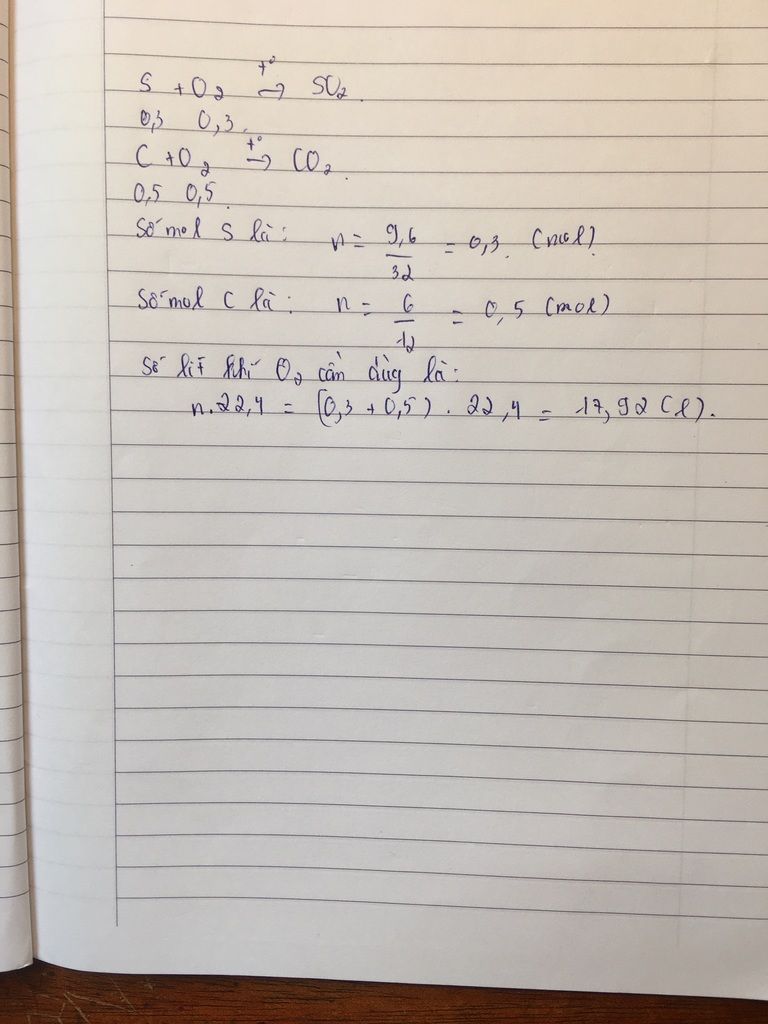 t°
S + O2 → SO2.
0,3 0,3.
t°
C + O2 → CO2.
0,5 0,5.
Số mol S là: n = 9,6/32 = 0,3. (mol)
Số mol C là: n = 6/12 = 0,5 (mol)
Số lít khí O2 cần dùg là:
n.22,4 = (0,3 + 0,5) . 22,4 = 17,92 (l).